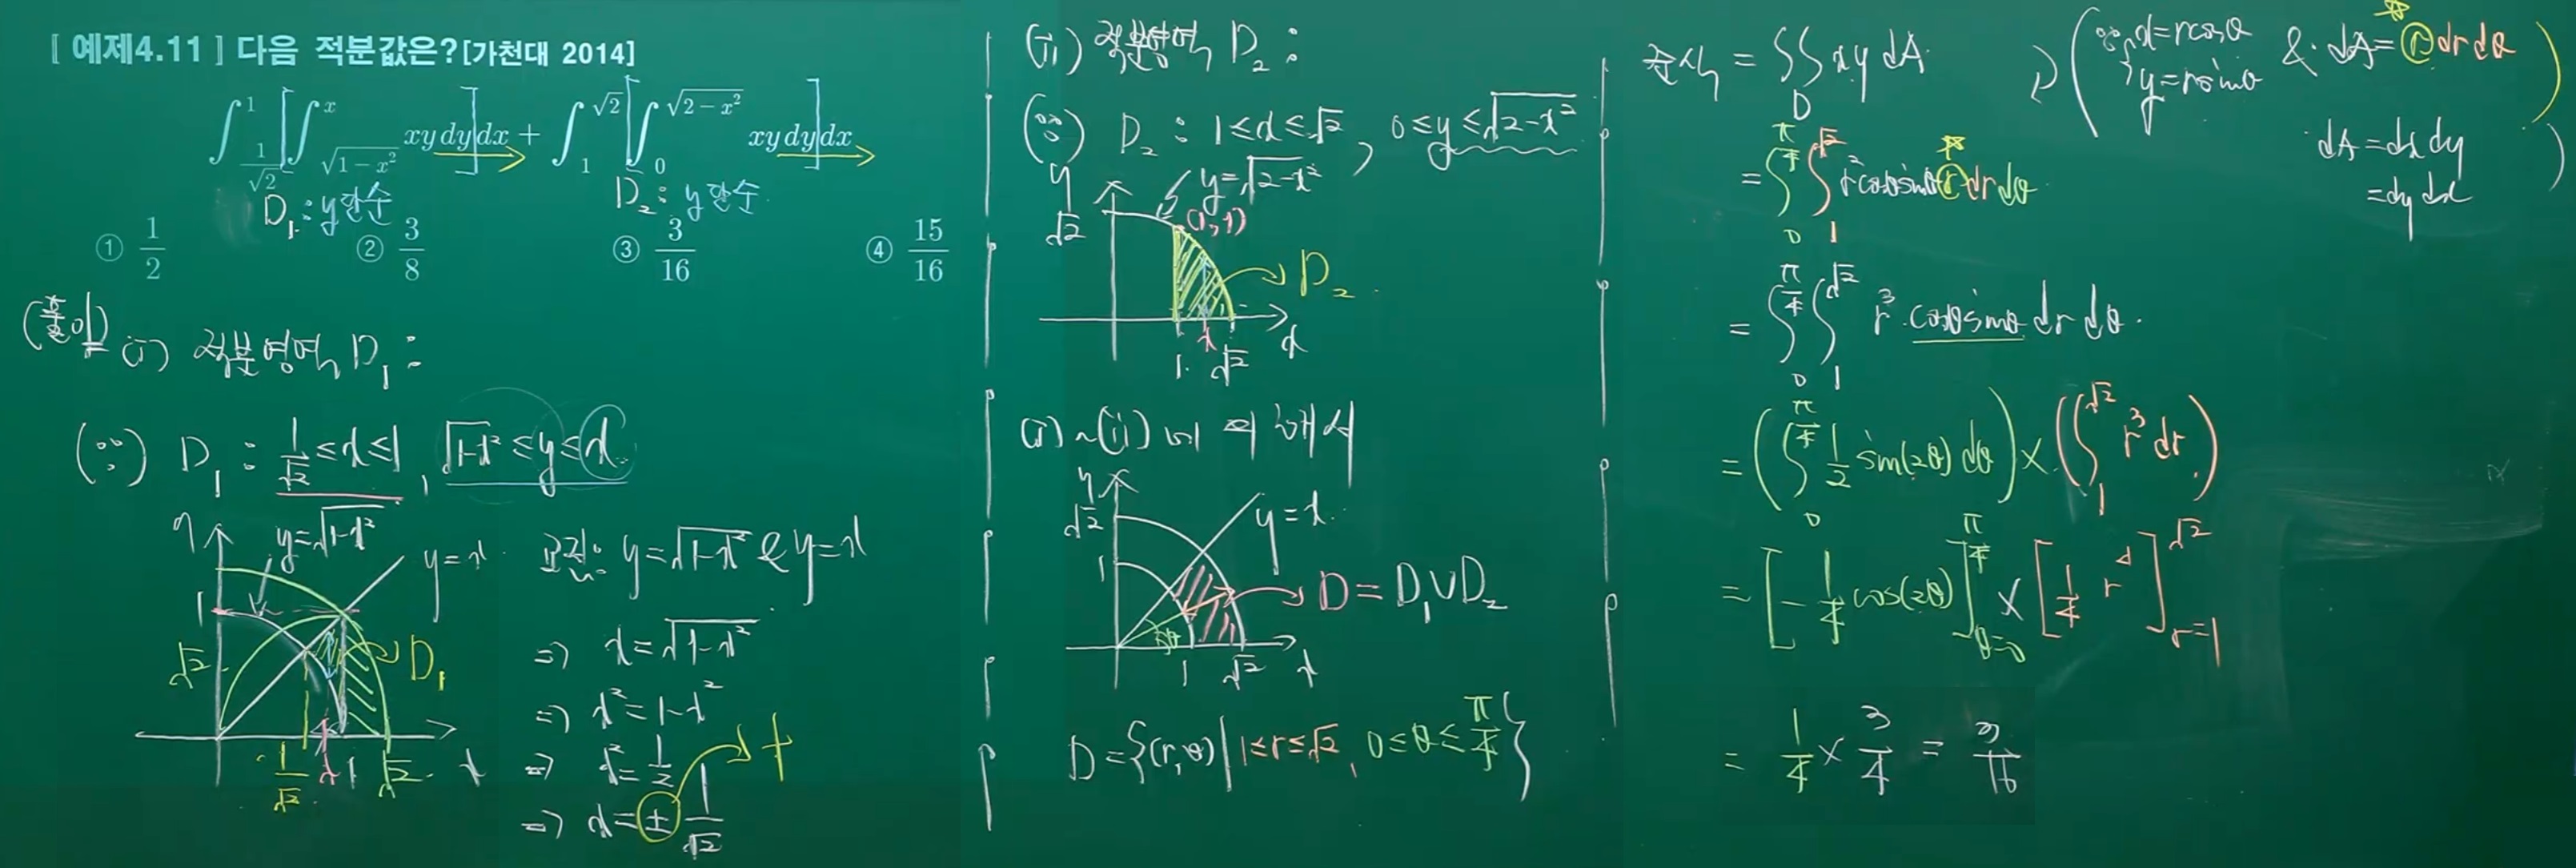 [ 예제4.11 ] 다음 적분값은?[가천대 2014]
∫_{1/√2}^{1} [∫_{√(1-x²)}^{x} xy dy] dx + ∫_{1}^{√2} [∫_{0}^{√(2-x²)} xy dy] dx
D₁ : y단순
D₂ : y단순
① 1/2 ② 3/8 ③ 3/16 ④ 15/16
(풀이)
(i) 적분영역 D₁ :
(∵) D₁ : 1/√2 ≤ x ≤ 1, √(1-x²) ≤ y ≤ x
y
y=√(1-x²)
y=x
1
√2
D₁
1/√2 x 1 √2 x
교점: y=√(1-x²) & y=x
⇒ x=√(1-x²)
⇒ x²=1-x²
⇒ x²=1/2
⇒ x=± 1/√2
+
(ii) 적분영역 D₂ :
(∵) D₂ : 1≤x≤√2, 0≤y≤√(2-x²)
y
y=√(2-x²)
√2
(1,1)
D₂
1 x √2 x
(i)~(ii)에 의해서
y
√2
y=x
1
D = D₁∪D₂
θ
1 √2 x
D={(r,θ)|1≤r≤√2, 0≤θ≤π/4}
준식 = ∬_D xy dA
(∵ x=rcosθ
y=rsinθ & dA=r dr dθ)
dA=dxdy
=dydx)
= ∫_{0}^{π/4} ∫_{1}^{√2} r²cosθsinθ r dr dθ
= ∫_{0}^{π/4} ∫_{1}^{√2} r³ cosθsinθ dr dθ.
= (∫_{0}^{π/4} 1/2 sin(2θ) dθ) × (∫_{1}^{√2} r³ dr)
= [-1/4 cos(2θ)]_{θ=0}^{π/4} × [1/4 r⁴]_{r=1}^{√2}
= 1/4 × 3/4 = 3/16